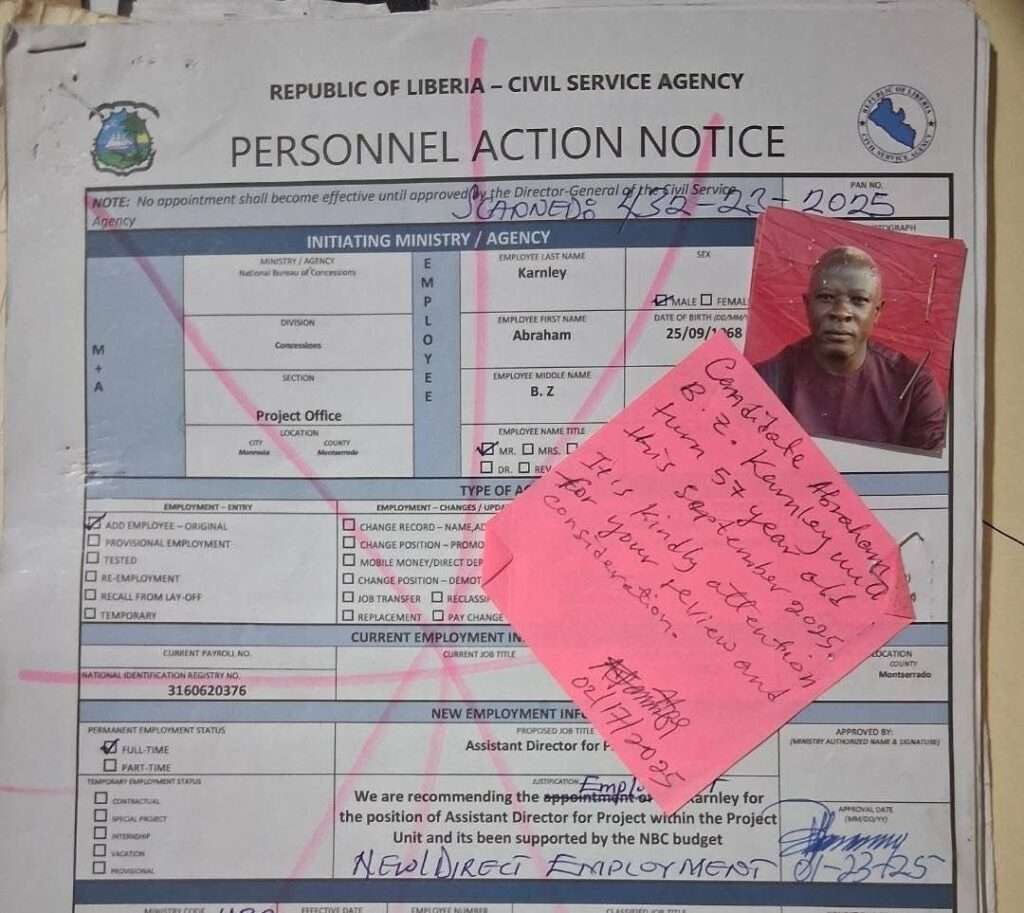 REPUBLIC OF LIBERIA – CIVIL SERVICE AGENCY
PERSONNEL ACTION NOTICE
REPUBLIC OF LIBERIA
CIVIL SERVICE AGENCY
NOTE: No appointment shall become effective until approved by the Director-General of the Civil Service
Agency
PAN NO.
SCANNED: 432-23-2025
INITIATING MINISTRY / AGENCY
MINISTRY / AGENCY
National Bureau of Concessions
DIVISION
Concessions
SECTION
Project Office
LOCATION
CITY COUNTY
Monrovia Montserrado
M
+
A
E
M
P
L
O
Y
E
E
EMPLOYEE LAST NAME
Karnley
EMPLOYEE FIRST NAME
Abraham
EMPLOYEE MIDDLE NAME
B. Z
EMPLOYEE NAME TITLE
MR. MRS.
DR. REV
SEX
MALE FEMAL
DATE OF BIRTH (DD/MM/
25/09/1968
Candidate Abraham
B. Z. Karnley will
turn 57 year old
this september 2025.
It is kindly attention
for your review and
consideration.
02/17/2025
TYPE OF
EMPLOYMENT – ENTRY
ADD EMPLOYEE – ORIGINAL
PROVISIONAL EMPLOYMENT
TESTED
RE-EMPLOYMENT
RECALL FROM LAY-OFF
TEMPORARY
EMPLOYMENT – CHANGES / UPDA
CHANGE RECORD – NAME,AD
CHANGE POSITION – PROMO
MOBILE MONEY/DIRECT DEP
CHANGE POSITION – DEMOT
JOB TRANSFER RECLASSIF
REPLACEMENT PAY CHANGE
CURRENT EMPLOYMENT IN
CURRENT PAYROLL NO.
CURRENT JOB TITLE
LOCATION
COUNTY
Montserrado
NATIONAL IDENTIFICATION REGISTRY NO.
3160620376
NEW EMPLOYMENT INFO
PERMANENT EMPLOYMENT STATUS
FULL-TIME
PART-TIME
TEMPORARY EMPLOYMENT STATUS
CONTRACTUAL
SPECIAL PROJECT
INTERNSHIP
VACATION
PROVISIONAL
PROPOSED JOB TITLE
Assistant Director for P
JUSTIFICATION
We are recommending the appointment of Karnley for
the position of Assistant Director for Project within the Project
Unit and its been supported by the NBC budget
NEW/DIRECT EMPLOYMENT
APPROVED BY:
(MINISTRY AUTHORIZED NAME & SIGNATURE)
APPROVAL DATE
(MM/DD/YY)
01-23-25
MINISTRY CODE
EFFECTIVE DATE
EMPLOYEE NUMBER
CLASSIFIED JOB TITLE